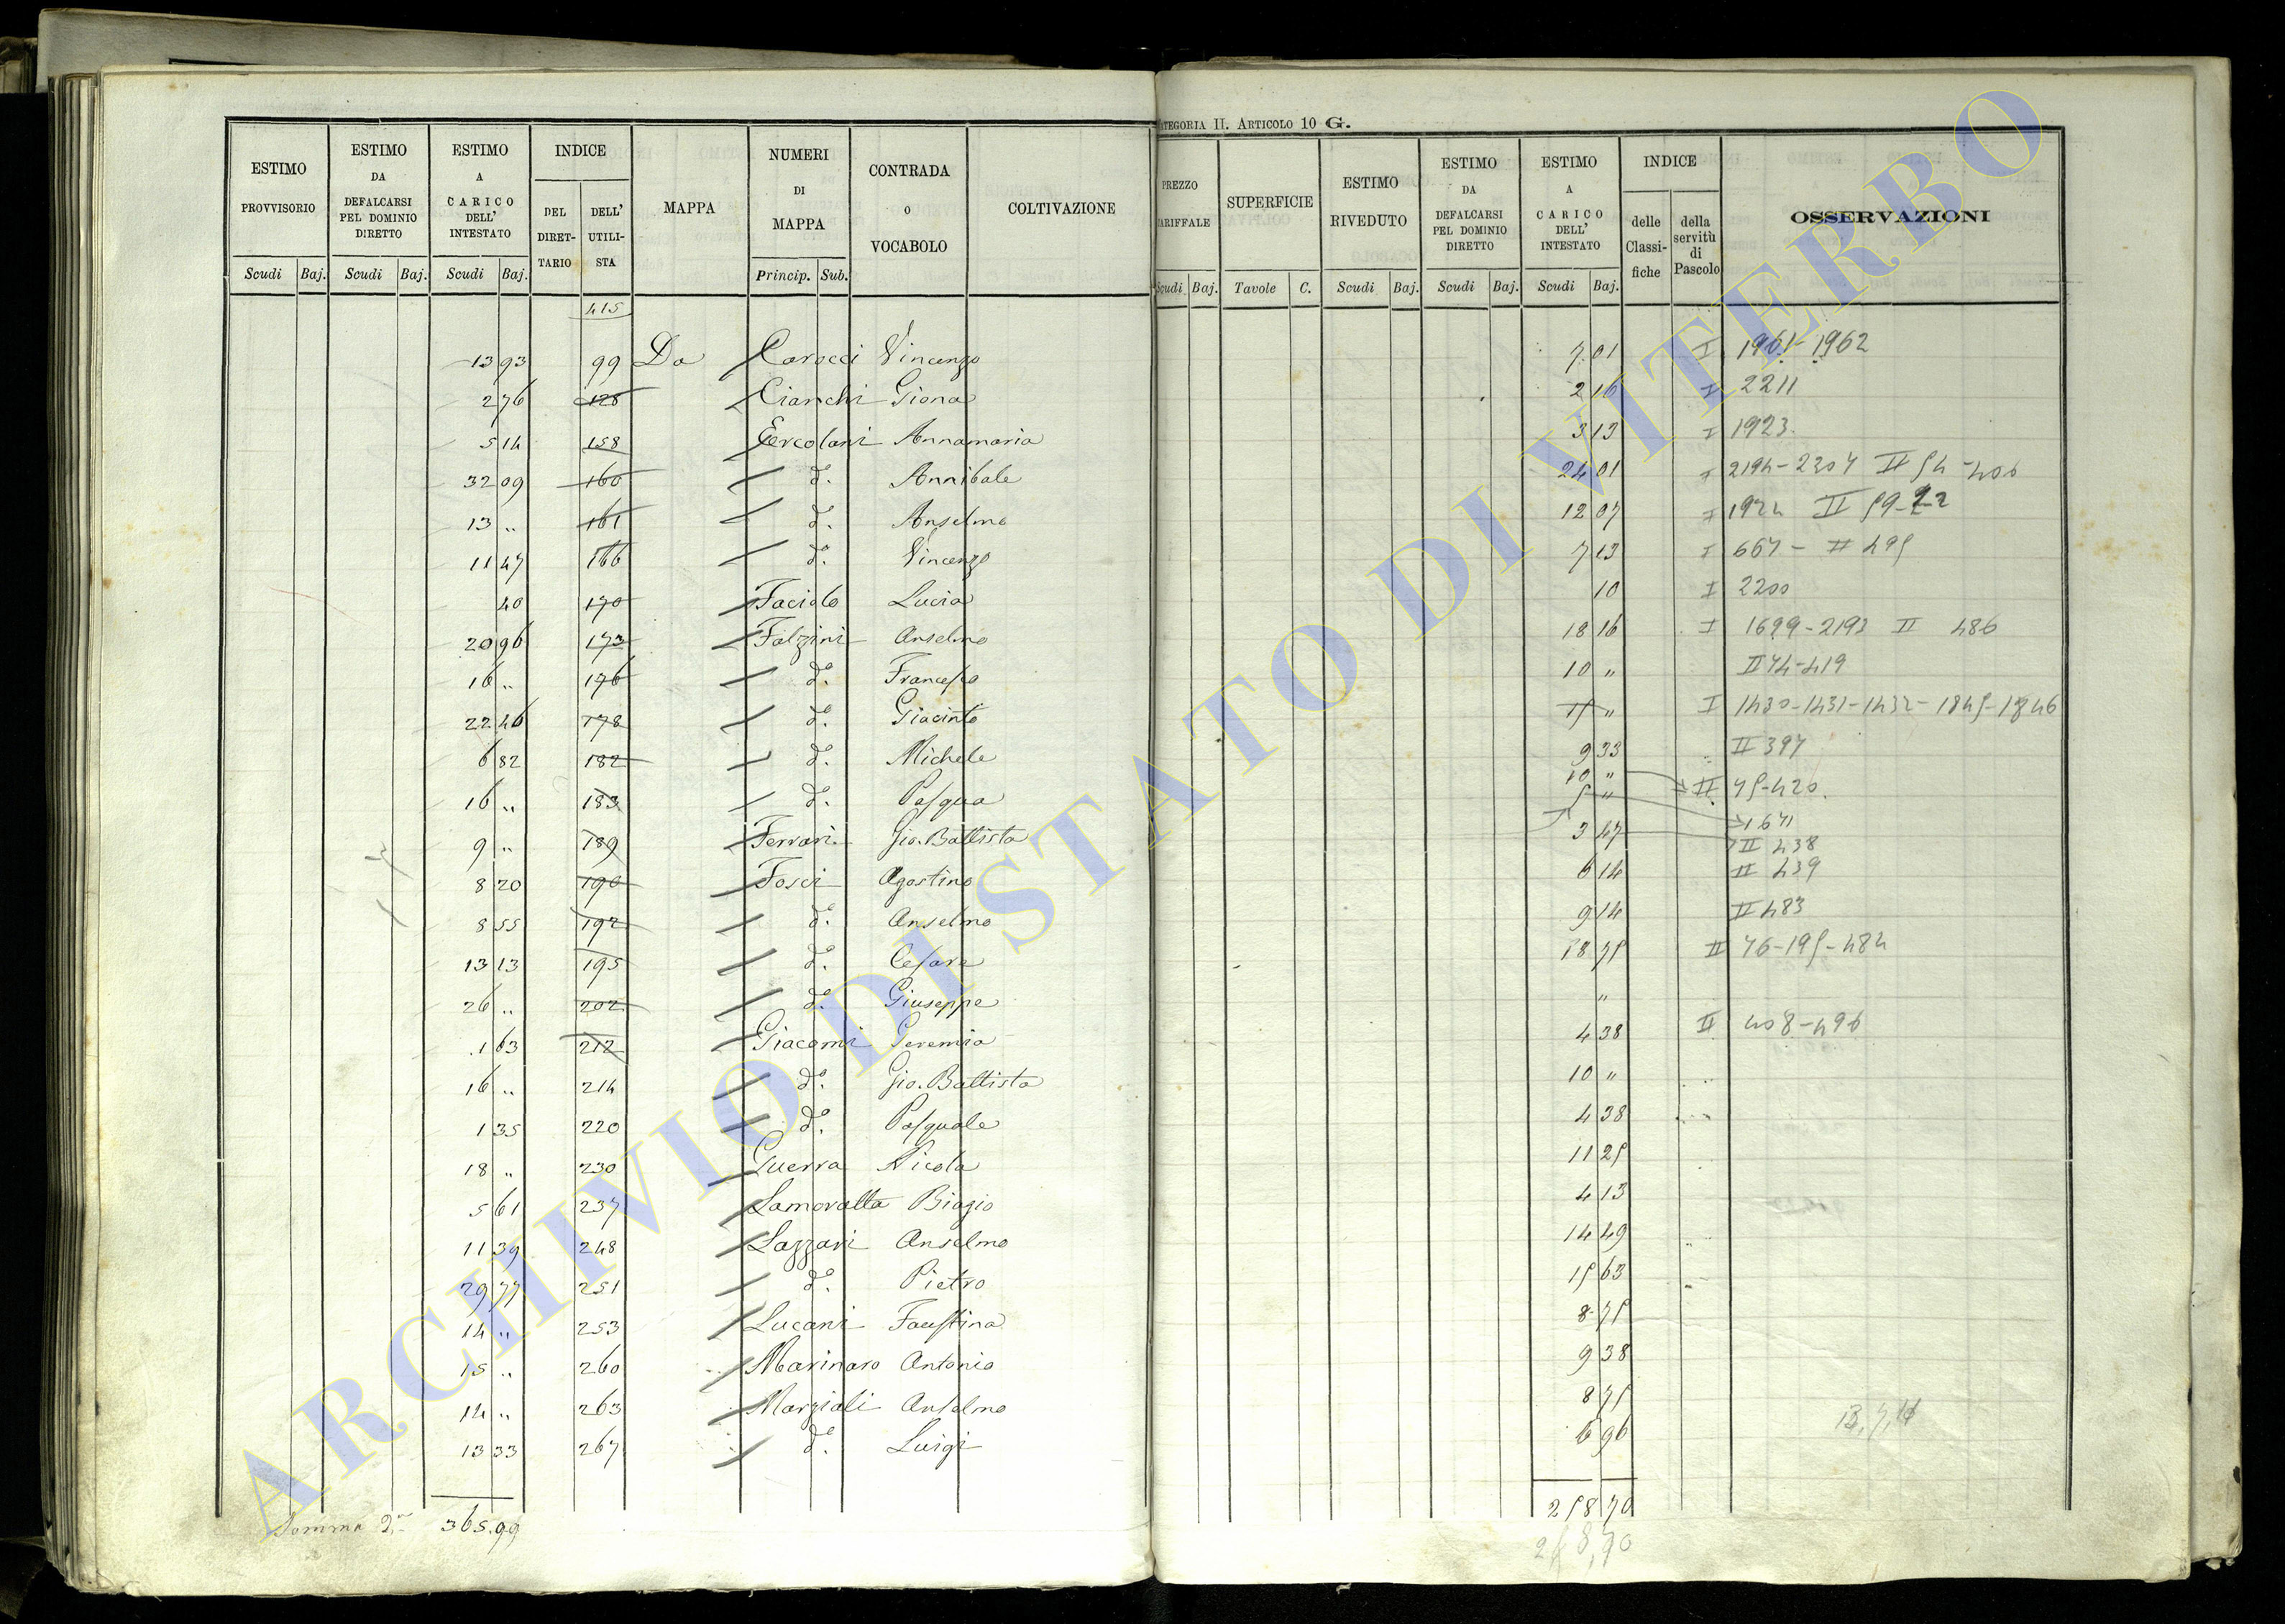 ESTIMO PROVVISORIO
ESTIMO DA DEFALCARSI PEL DOMINIO DIRETTO
ESTIMO A CARICO DELL' INTESTATO
INDICE
DEL DIRETTARIO
DELL' UTILISTA
MAPPA
NUMERI DI MAPPA
CONTRADA O VOCABOLO
COLTIVAZIONE
Scudi Baj. Scudi Baj. Scudi Baj. Princip. Sub.
415
13 93 99 Da Carocci Vincenzo
2 76 128 Cianchi Giona
5 14 158 Ercolani Annamaria
32 09 160 d.° Annibale
13 ,, 161 d.° Anselmo
11 47 166 d.° Vincenzo
40 170 Faciolo Lucia
20 96 173 Falzini Anselmo
16 ,, 176 d.° Francesco
22 46 178 d.° Giacinto
6 82 182 d.° Michele
16 ,, 183 d.° Pasqua
9 ,, 189 Ferrari Gio. Battista
8 20 190 Fosci Agostino
8 55 192 d.° Anselmo
13 13 195 d.° Cesare
26 ,, 202 d.° Giuseppe
1 63 212 Giacomi Geremia
16 ,, 214 d.° Gio. Battista
1 35 220 d.° Pasquale
18 ,, 230 Guerra Nicola
5 61 237 Lamoratta Biagio
11 39 248 Lazzari Anselmo
29 77 251 d.° Pietro
14 ,, 253 Lucani Faustina
15 ,, 260 Marinaro Antonio
14 ,, 263 Marziali Anselmo
13 33 267 d.° Luigi
Somma 365.99
ATEGORIA II. ARTICOLO 10 G.
PREZZO ARIFFALE
SUPERFICIE
ESTIMO RIVEDUTO
ESTIMO DA DEFALCARSI PEL DOMINIO DIRETTO
ESTIMO A CARICO DELL' INTESTATO
INDICE
delle Classifiche
della servitù di Pascolo
OSSERVAZIONI
Scudi Baj. Tavole C. Scudi Baj. Scudi Baj. Scudi Baj.
7 01 I 1961-1962
2 16 I 2211
3 13 I 1923
24 01 I 2194-2307 II 54-406
12 07 I 1924 II 59-22
7 13 I 667- II 495
10 I 2200
18 16 I 1699-2193 II 486
10 " II 74-419
15 " I 1430-1431-1432-1845-1846
9 33 II 397
10 " II 75-420.
5 " 1671
3 47 II 438
6 14 II 439
9 14 II 483
18 75 II 76-195-484
"
4 38 II 408-496
10 "
4 38
11 25
4 13
14 49
15 63
8 75
9 38
8 75
6 96
258 70
258,70
ARCHIVIO DI STATO DI VITERBO